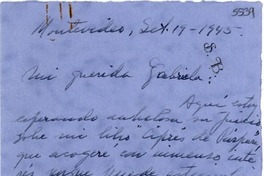 5539
Montevideo, Set. 19 - 1945 -
S. B.
Mi querida Gabriela:
Aquí estoy
esperando anhelosa su juicio
sobre mi libro "Ciprés de Púrpura",
que acogeré con inmenso inte-
rés